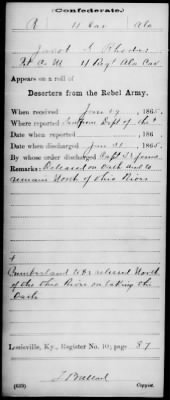 (Confederate.)
R 11 Cav Ala
Jacob G Rhodes
Pt Co M 11 Regt Ala Cav
Appears on a roll of
Deserters from the Rebel Army.
When received June 19, 1865.
Where reported Dept of the
+
Date when reported , 186 .
Date when discharged June 21, 1865.
By whose order discharged Capt Jones
Remarks: Released on Oath and to
remain North of Ohio River
+
Cumberland to be released North
of the Ohio River on taking the
Oath
Louisville, Ky., Register No. 10; page 37
(639) Copyist.